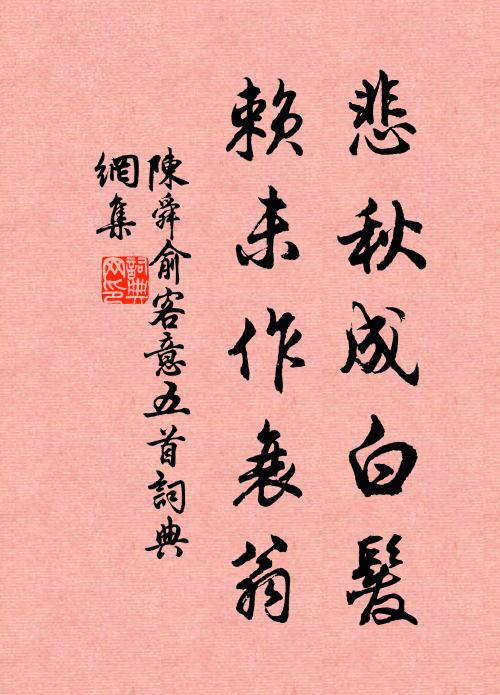 悲秋成白髮
賴未作衰翁
陳舜俞客意五首詞典
網集
詞典网印